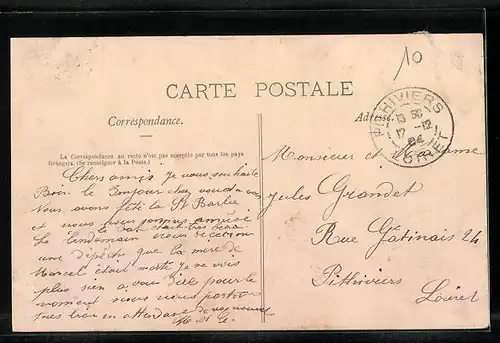 10
CARTE POSTALE
Correspondance.
Adresse
PITHIVIERS
17 -12
04
LOIRET
La Correspondance au recto n'est pas acceptée par tous les pays
étrangers. (Se renseigner à la Poste.)
Chers amis je vous souhaite
Bien le Bonjour chez vous
Nous avons fêté la St Barbe
et nous nous sommes amusé
Le lendemain nous recevions
une dépêche que la mère de
Marcel était morte je ne vois
plus rien a vous dire pour le
moment nous nous portons
tous bien en attendant de vos nouvel
Monsieur et Madame
Jules Grandet
Rue Gatinais 24
Pithiviers
Loiret